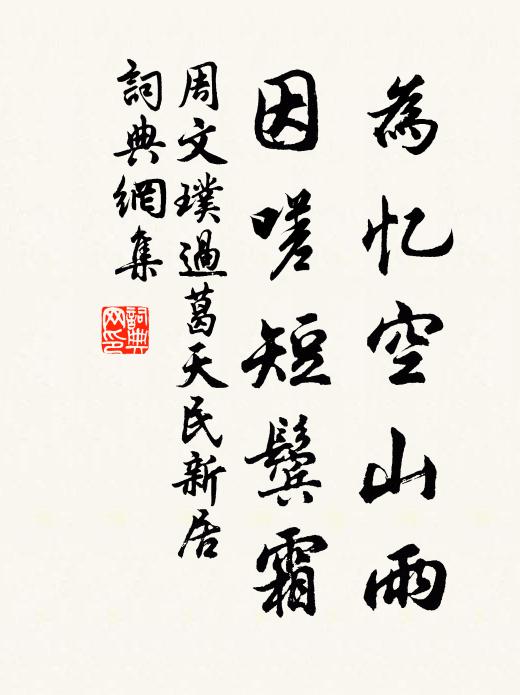 為忆空山雨
因嗟短鬢霜
周文璞過葛天民新居
詞典網集
詞典网印